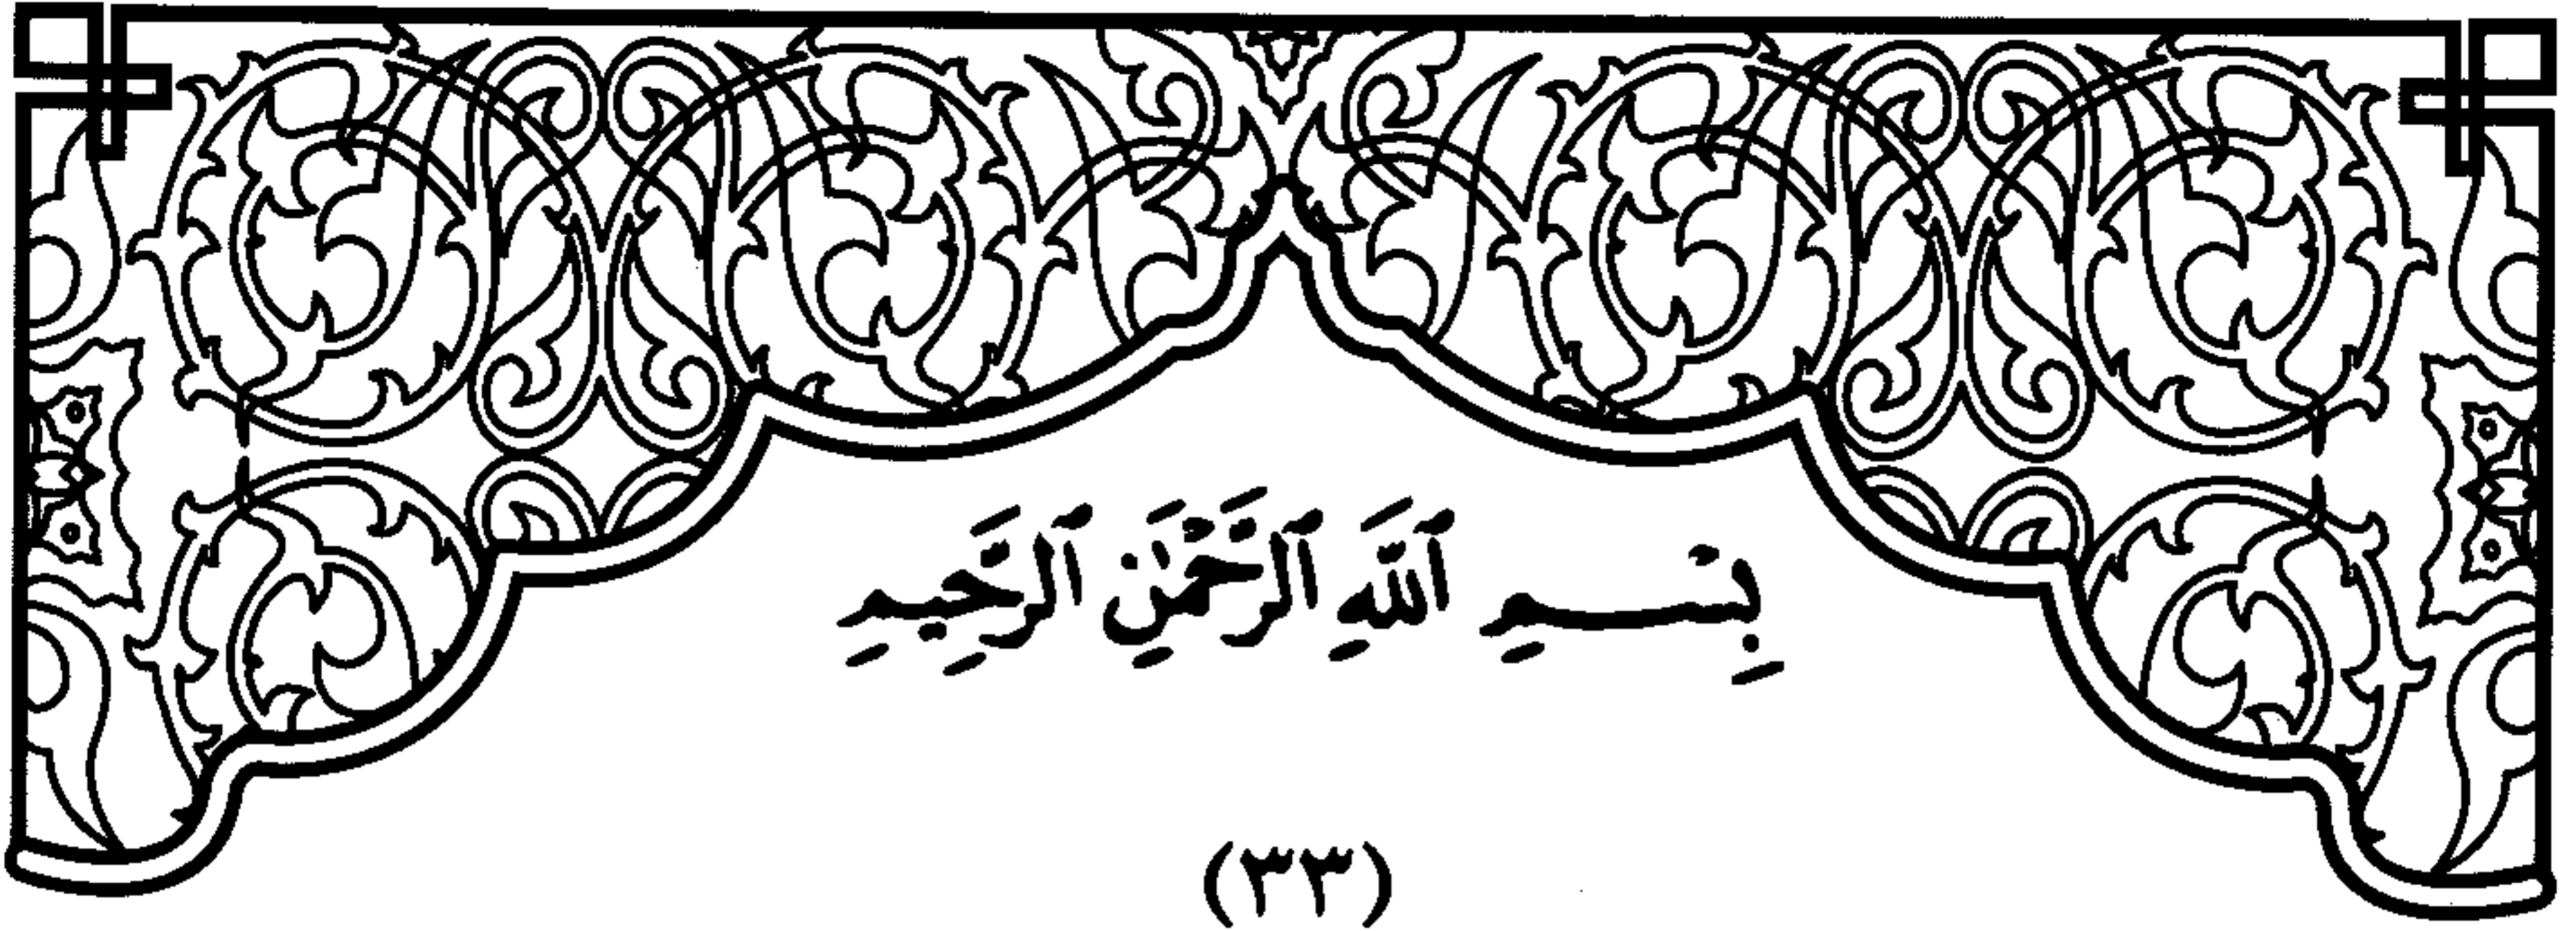 بِسْمِ ٱللَّهِ ٱلرَّحْمَٰنِ ٱلرَّحِيمِ
(٣٣)